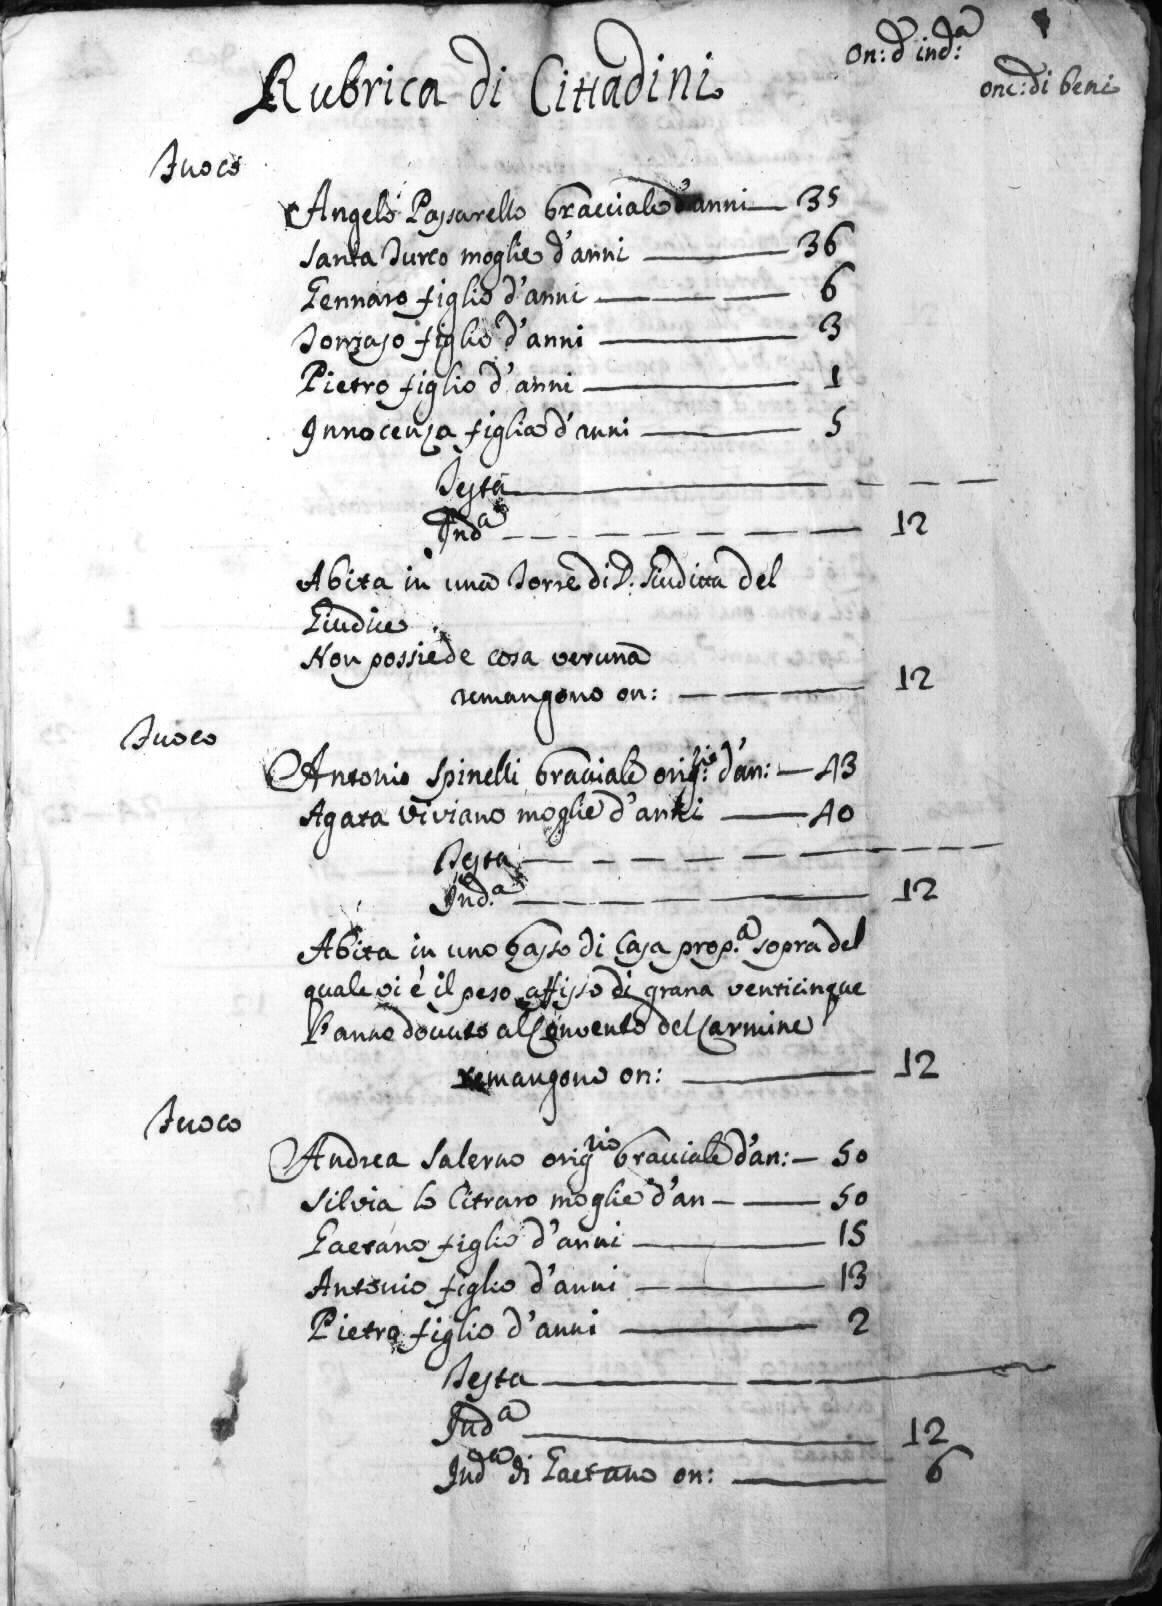 On: d'ind.a
onc: di beni
Rubrica di Cittadini
Fuoco
Angelo Passarello bracciale d'anni — 35
Santa Turco moglie d'anni — 36
Gennaro figlio d'anni — — — 6
Tomaso figlio d'anni — 3
Pietro figlio d'anni — 1
Innocenza figlia d'anni — 5
Testa — — — —
Ind.a — — — — — — — 12
Abita in una Torre di D. Giuditta del
Giudice
Non possiede cosa veruna
remangono on: — — — 12
Fuoco
Antonio Spinelli bracciale orig.rio d'an: — 43
Agata Viviano moglie d'anni — 40
Testa — — — — — — — —
Ind.a — — — — — 12
Abita in uno basso di Casa prop.a sopra del
quale vi è il peso affisso di grana venticinque
l'anno dovuto al Convento del Carmine
remangono on: — 12
Fuoco
Andrea Salerno orig.rio bracciale d'an: — 50
Silvia lo Citraro moglie d'an — — 50
Gaetano figlio d'anni — 15
Antonio figlio d'anni — — 13
Pietro figlio d'anni — — 2
Testa — — —
Ind.a — 12
Ind.a di Gaetano on: — 6